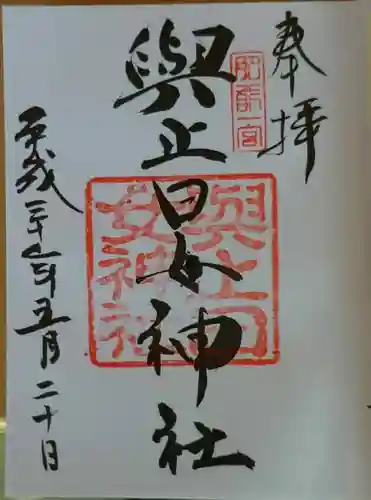 奉拝
肥前一宮
與止日女神社
與止日女神社
平成二十七年五月二十日